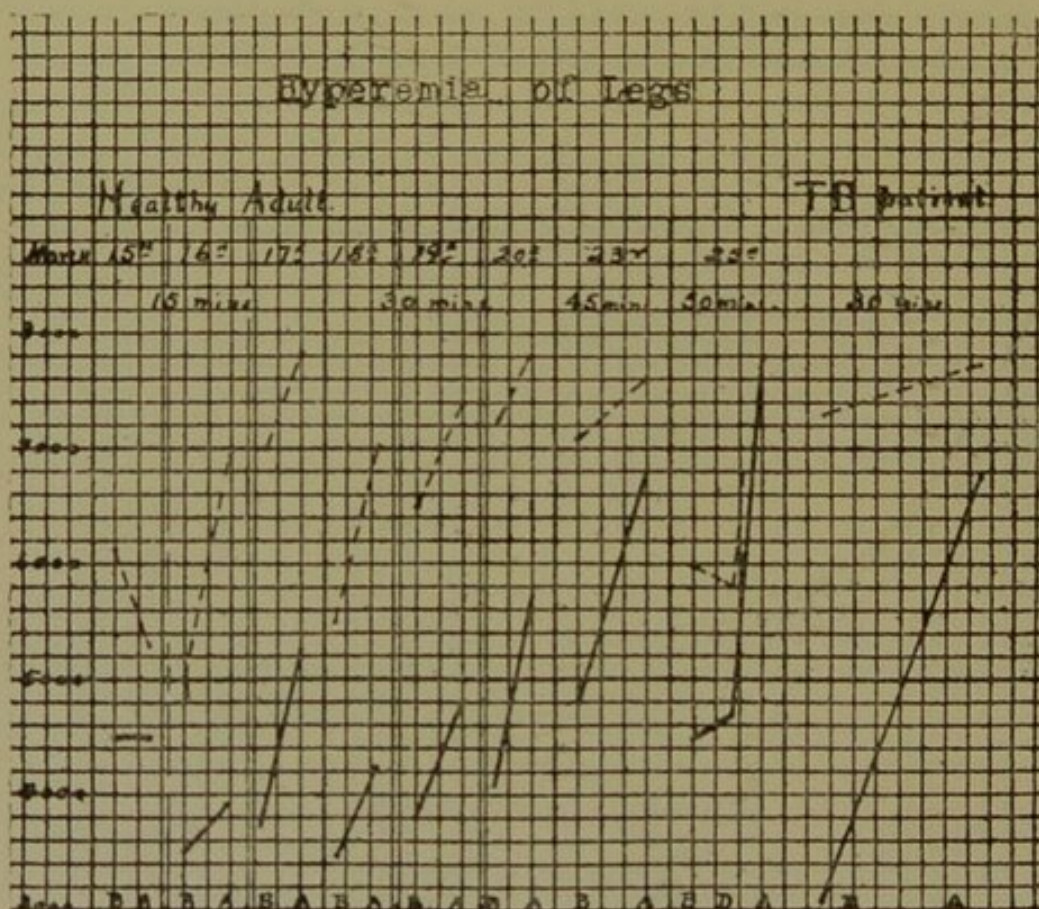 Hyperemia of Legs
Healthy Adult TB patient
March 15th 16th 17th 18th 19th 20th 23r 25th
15 mins 30 mins 45 min 30 mins
7000
6000
5000
B A B A B A B A B A B D A B A